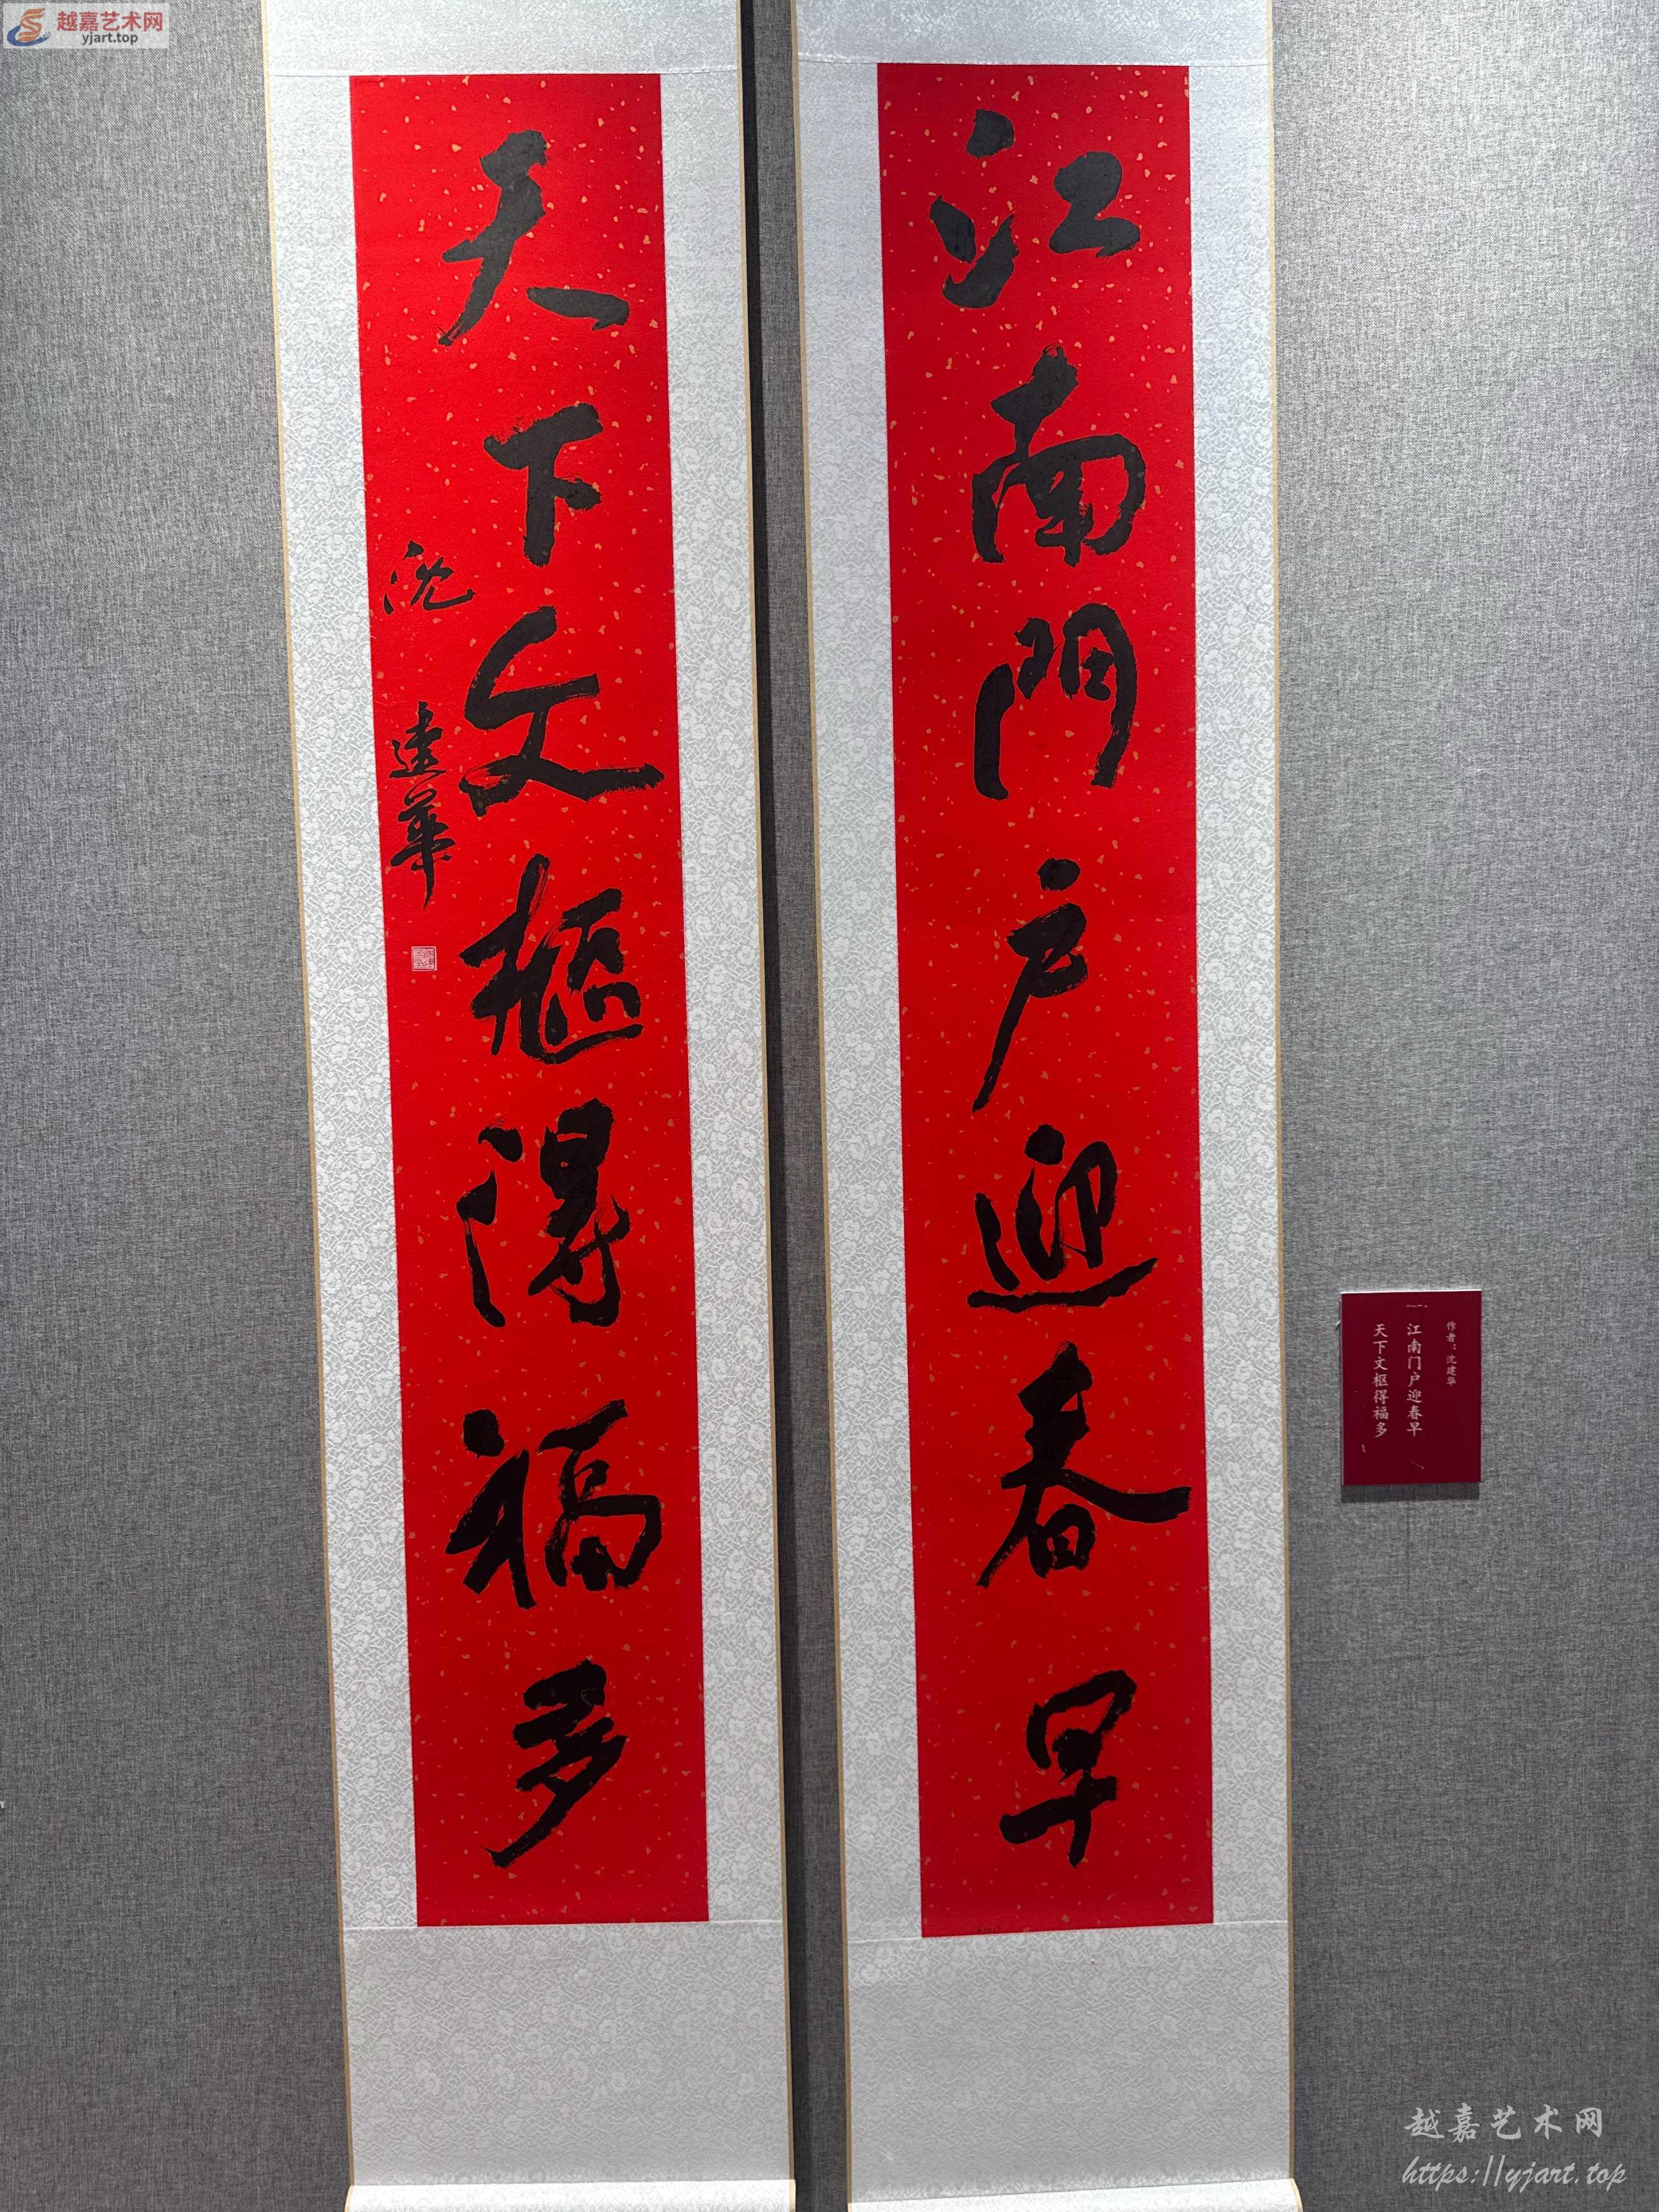 越嘉艺术网
yjart.top
江南門户迎春早
天下文樞得福多
沈建華
作者：沈建华
江南门户迎春早
天下文枢得福多
越嘉艺术网
https://yjart.top